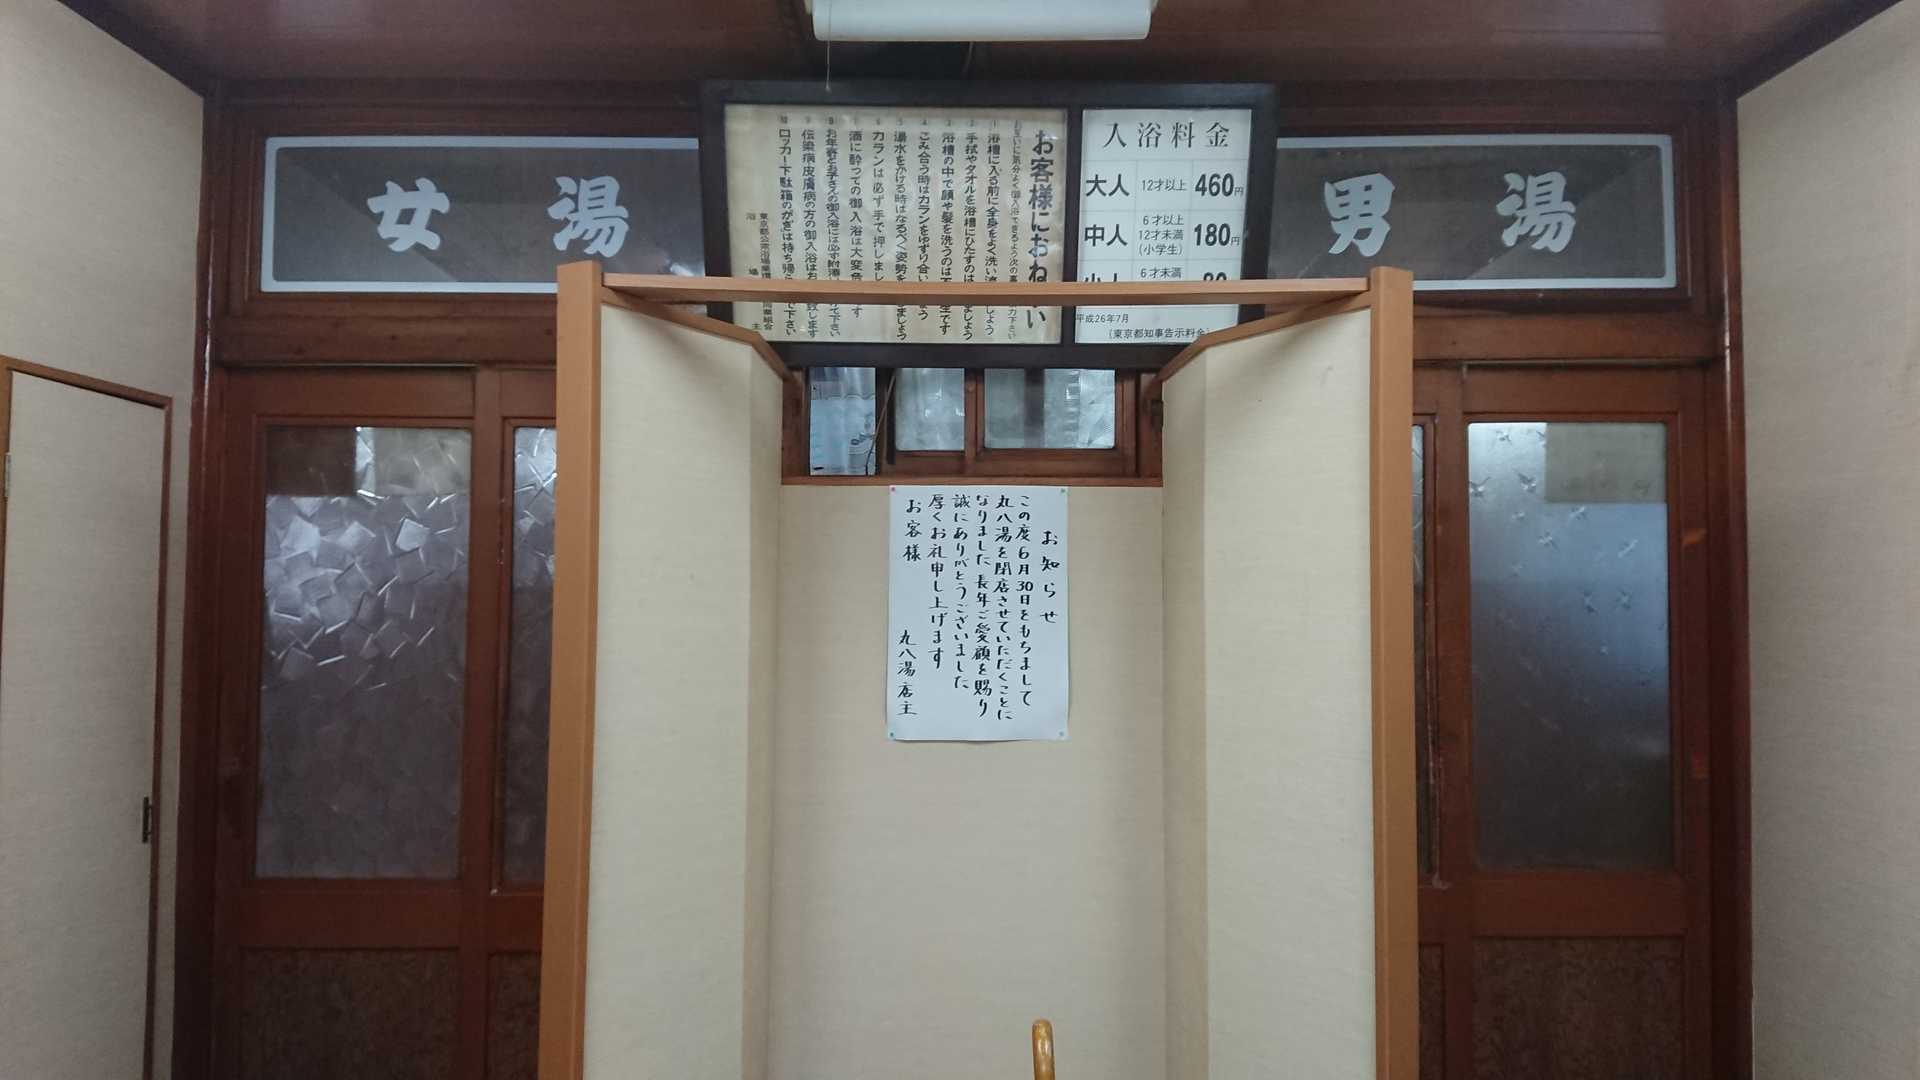 女湯
お客様におね い
お互いに気分よく御入浴できるよう次の事 力下さい
1 浴槽に入る前に全身をよく洗い流 しょう
2 手拭やタオルを浴槽にひたすのは ましょう
3 浴槽の中で顔や髪を洗うのは不 生です
4 こみ合う時はカランをゆずり合い よう
5 湯水をかける時はなるべく姿勢を ましょう
6 カランは必ず手で押しまし
7 酒に酔っての御入浴は大変危 す
8 お年寄とお子さんの御入浴には必ず附添 て下さい
9 伝染病皮膚病の方の御入浴はお 致します
10 ロッカー下駄箱のかぎは持ち帰ら で下さい
東京都公衆浴場業環 同業組合
浴場主
入浴料金
大人 12才以上 460円
中人 6才以上 12才未満 (小学生) 180円
小人 6才未満 80
平成26年7月
(東京都知事告示料金)
男湯
お知らせ
この度6月30日をもちまして
丸八湯を閉店させていただくことに
なりました 長年ご愛顧を賜り
誠にありがとうございました
厚くお礼申し上げます
お客様
丸八湯店主